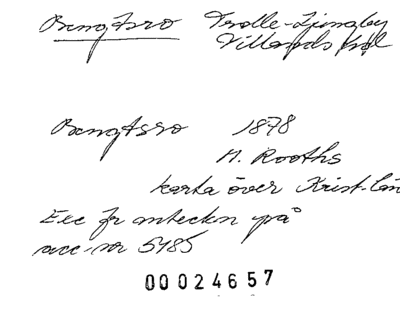 Bengtsro Trolle-Ljungby
Villands hd
Bengtsro 1878
M. Rooths
karta över Krist-län
Exc fr anteckn på
acc-nr 5485
00024657